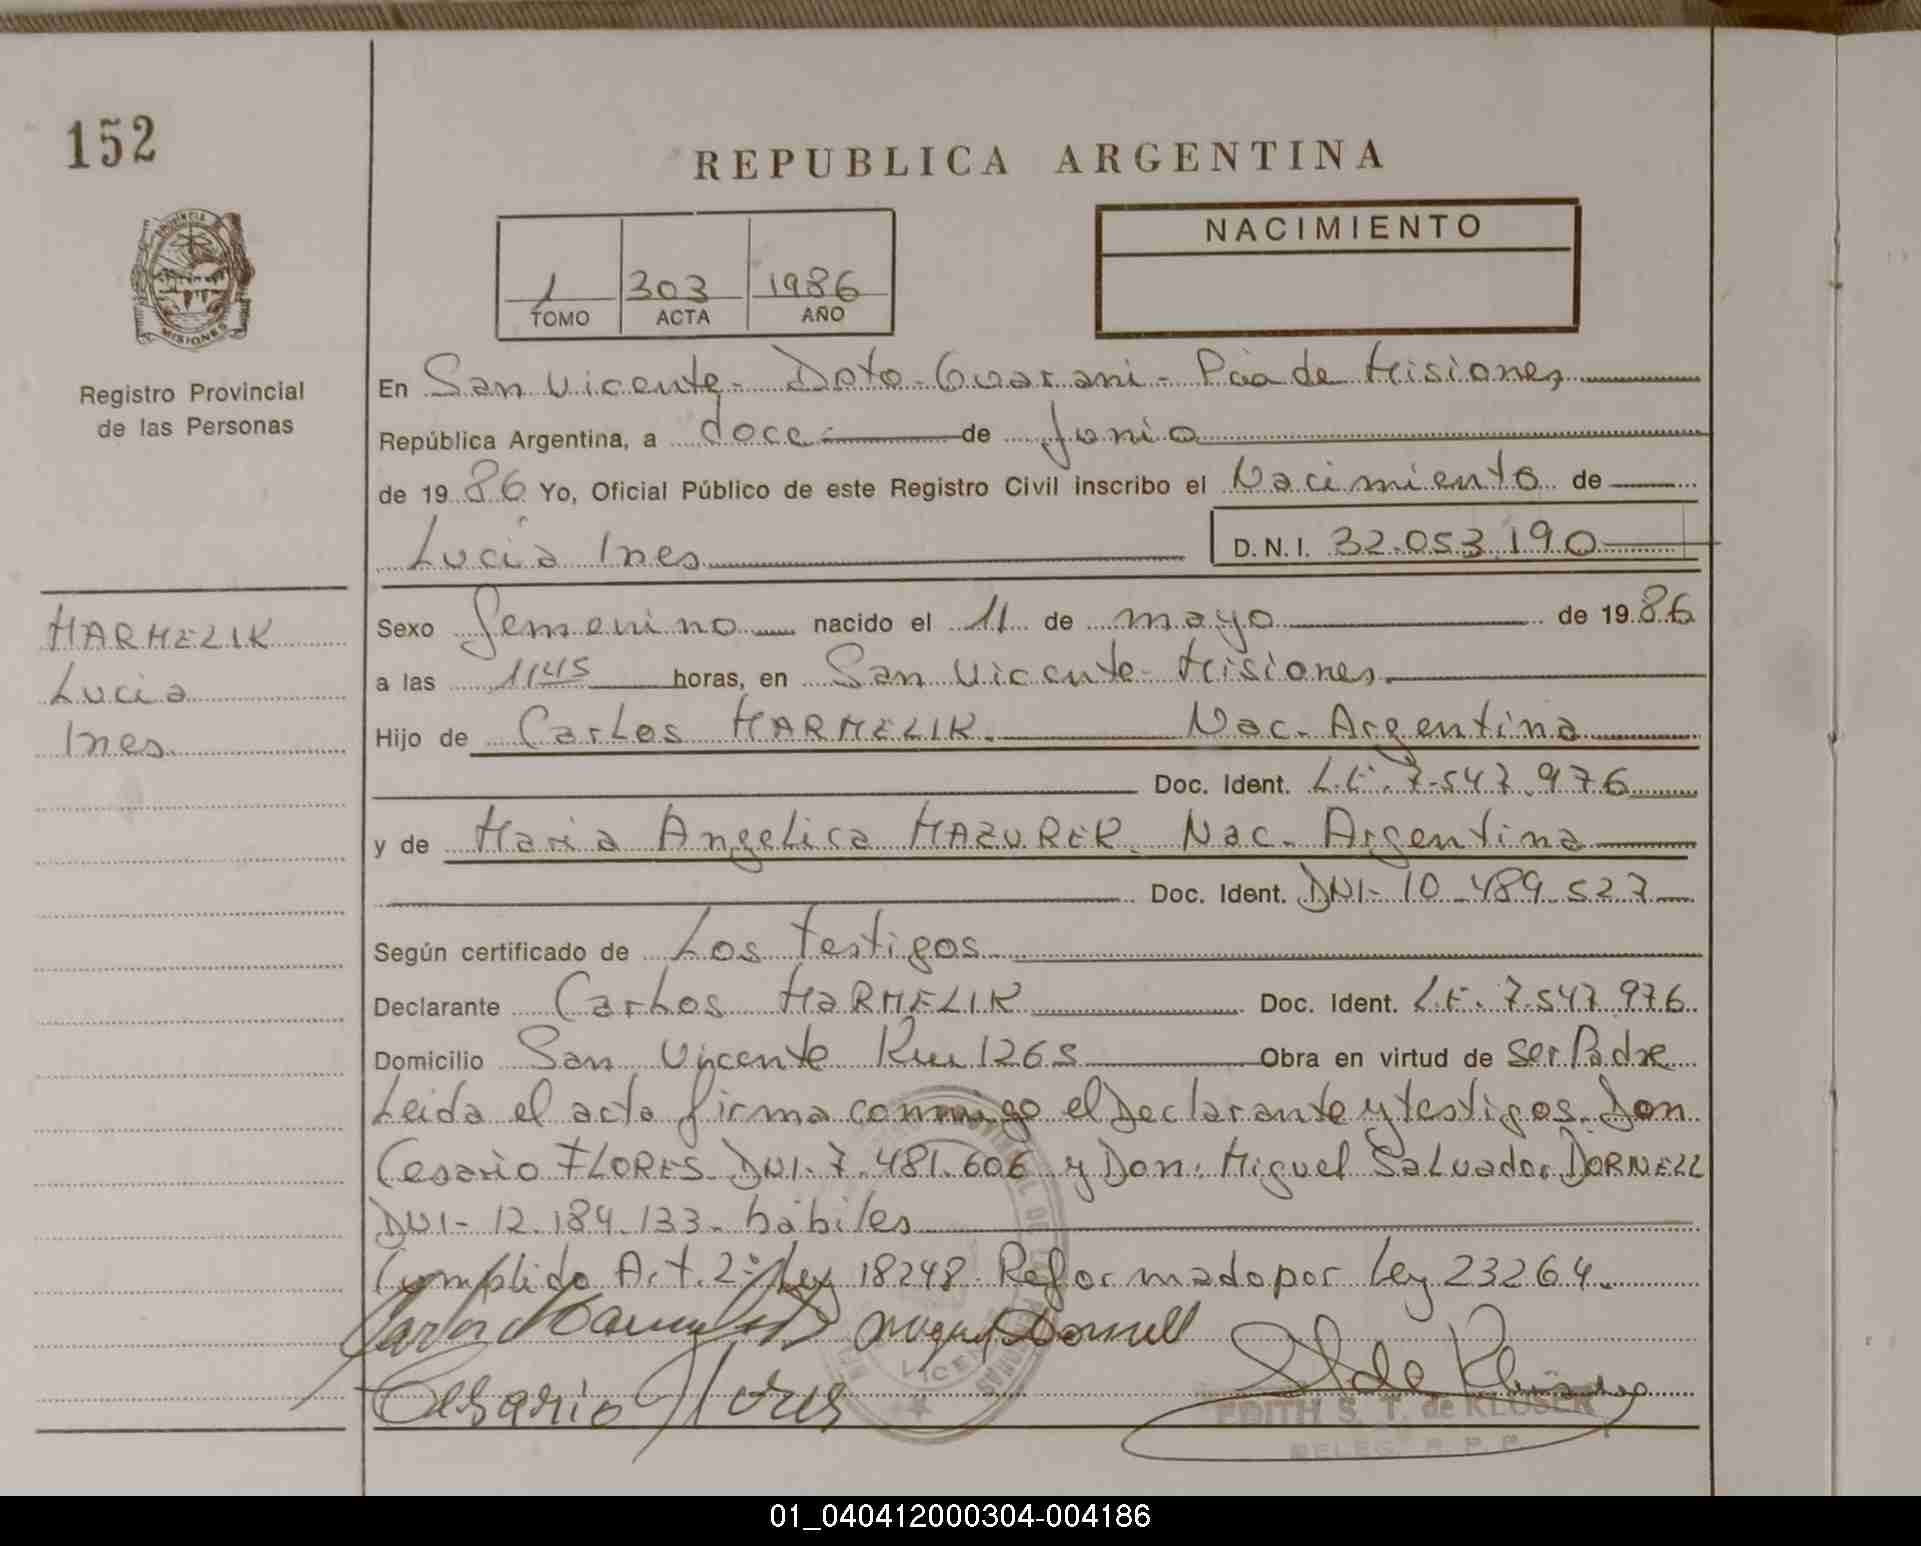 152
REPUBLICA ARGENTINA
PROVINCIA
MISIONES
Registro Provincial
de las Personas
1 303 1986
TOMO ACTA AÑO
NACIMIENTO
En San Vicente - Dpto - Guarani - Pcia de Misiones
República Argentina, a doce de Junio
de 1986 Yo, Oficial Público de este Registro Civil inscribo el Nacimiento de
Lucia Ines D.N.I. 32.053.190
HARMELIK
Lucia
Ines
Sexo Femenino nacido el 11 de mayo de 1986
a las 1145 horas, en San Vicente - Misiones.
Hijo de Carlos HARMELIK. Nac. Argentina
Doc. Ident. L.E. 7.547.976
y de Maria Angelica MAZURER. Nac. Argentina
Doc. Ident. DNI - 10.489.527
Según certificado de Los testigos
Declarante Carlos HARMELIK Doc. Ident. L.E. 7.547.976
Domicilio San Vicente Km 1265 Obra en virtud de ser Padre
Leida el acta firma conmigo el Declarante y testigos. Don
Cesario FLORES DNI. 7.481.606 y Don. Miguel Salvador DORNELL
DNI - 12.184.133. habiles
Cumplido Art. 2º Ley 18248. Reformado por Ley 23264.
Miguel Dornell
Cesario Flores
EDITH S. T. de KLUSER
DELEG. R. P. P.
01_040412000304-004186